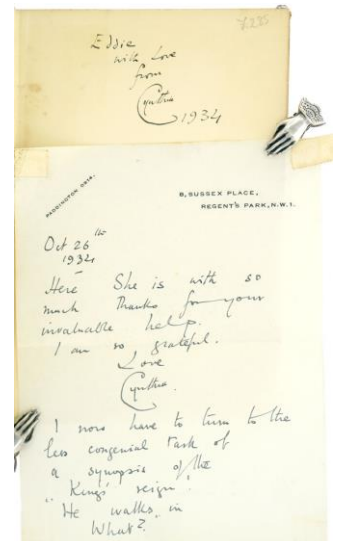 £225
Eddie
with Love
from
Cynthia
1934
PADDINGTON 0814.
8, SUSSEX PLACE,
REGENT'S PARK, N.W.1.
Oct 26th
1934
Here She is with so
much thanks for your
invaluable help.
I am so grateful.
Love
Cynthia.
I now have to turn to the
less congenial task of
a synopsis of the
"King's reign".
"He walks in
What?